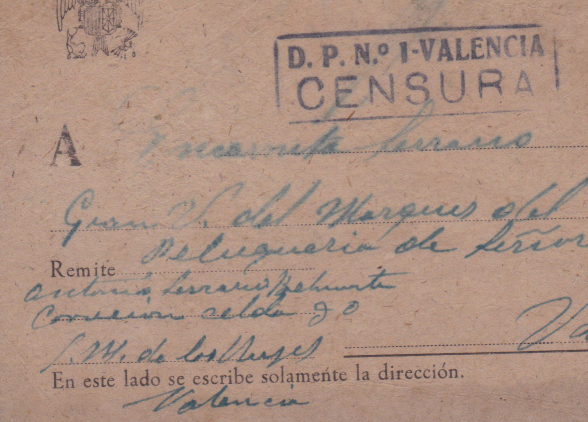 D. P. N.º 1-VALENCIA
CENSURA
A Encarnita Serrano
Gran V. del Marques del
Peluqueria de Señor
Remite
Antonio Serrano
celda 20
Va
En este lado se escribe solamente la dirección.
Valencia